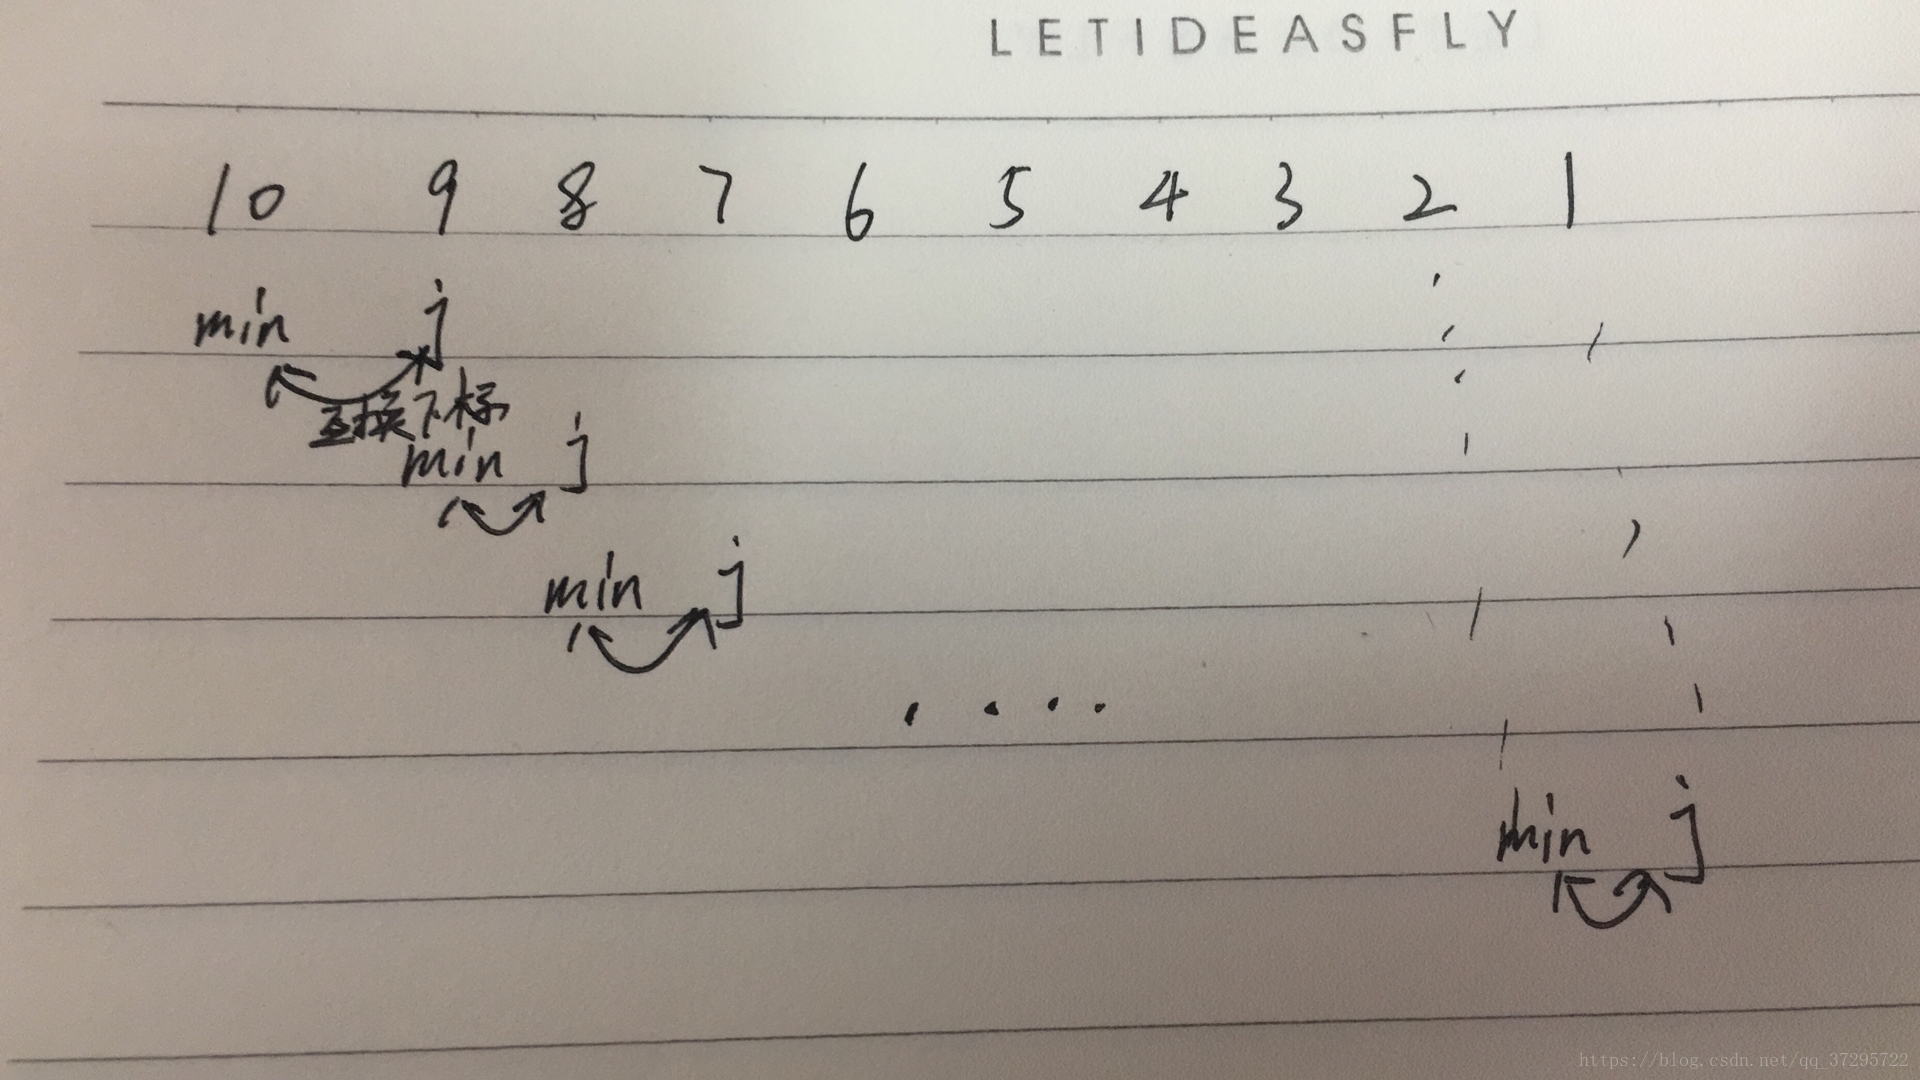 LETIDEASFLY
10 9 8 7 6 5 4 3 2 1
min j
互换下标
min j
min j
. . . .
min j
https://blog.csdn.net/qq_37295722